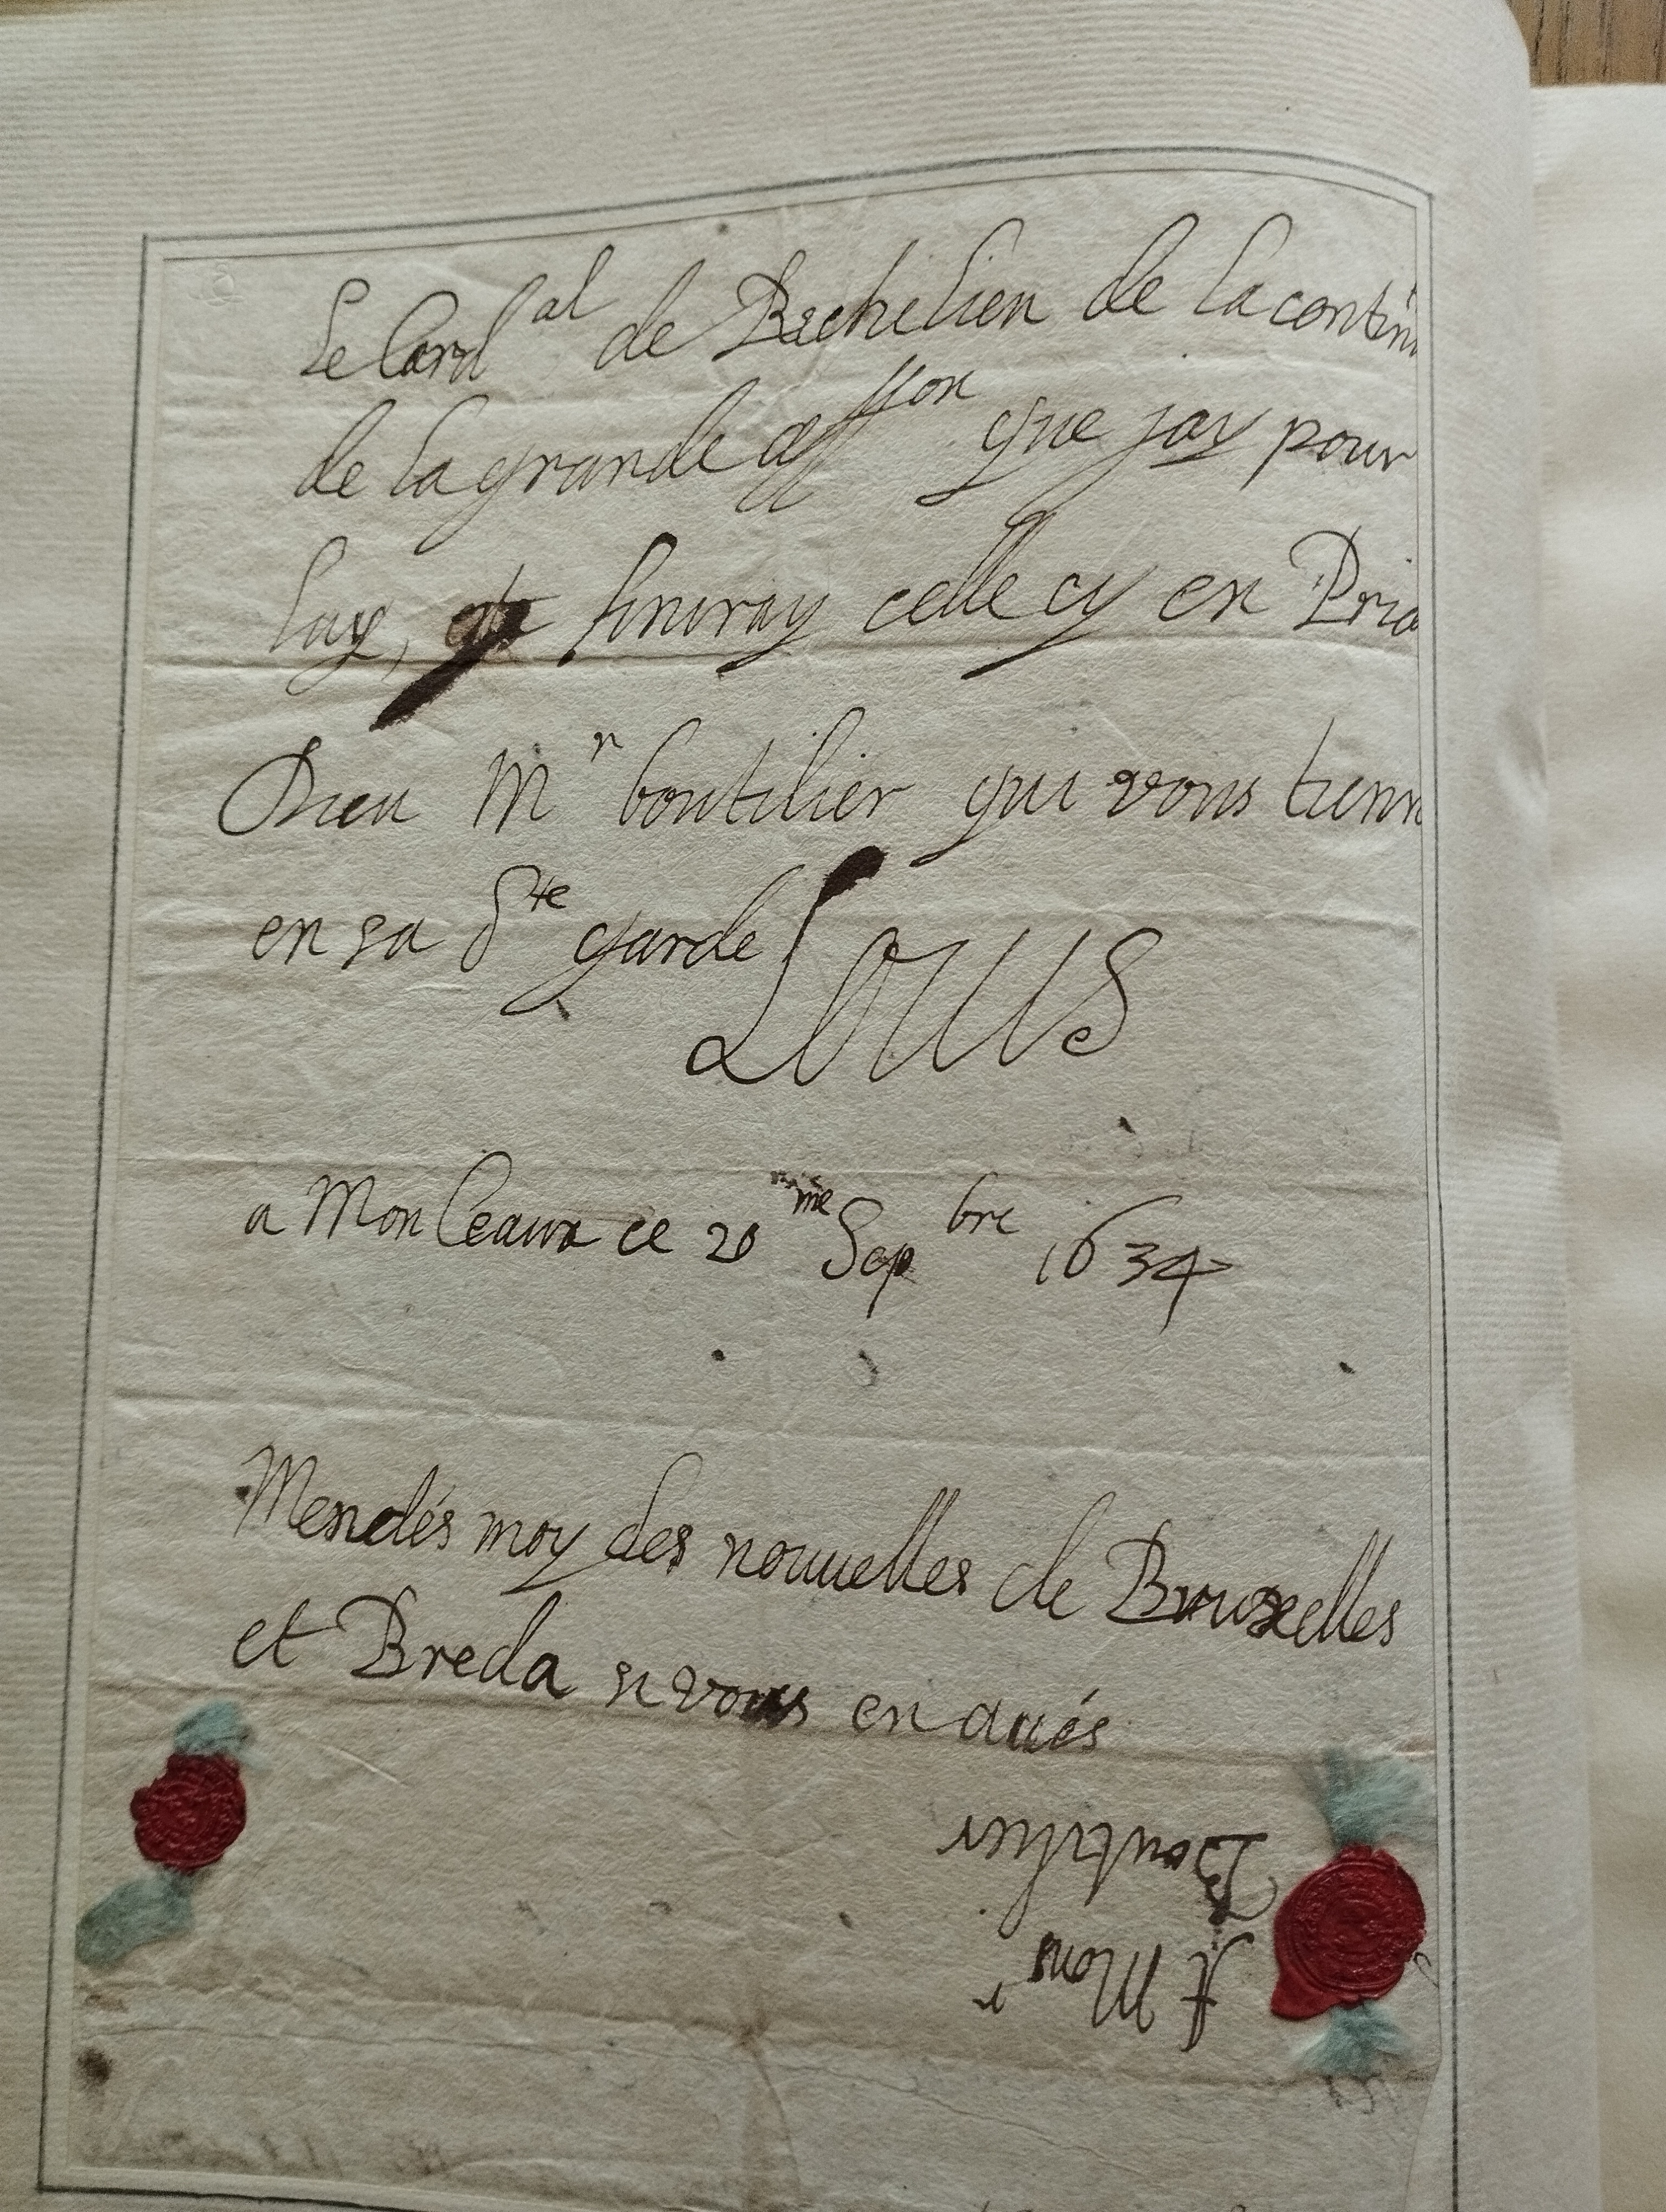 Le Card^al de Richelieu de la contin
de la grande aff^on que jay pour
luy, finiray celle cy en Pria
Dieu M^r boutilier qui vous tienn
en sa S^te garde LOUIS
a Monceaux ce 20^me Sep^bre 1634
Mendés moy des nouuelles de Bruxelles
et Breda si vous en aués
A Mons^r
Boutilier